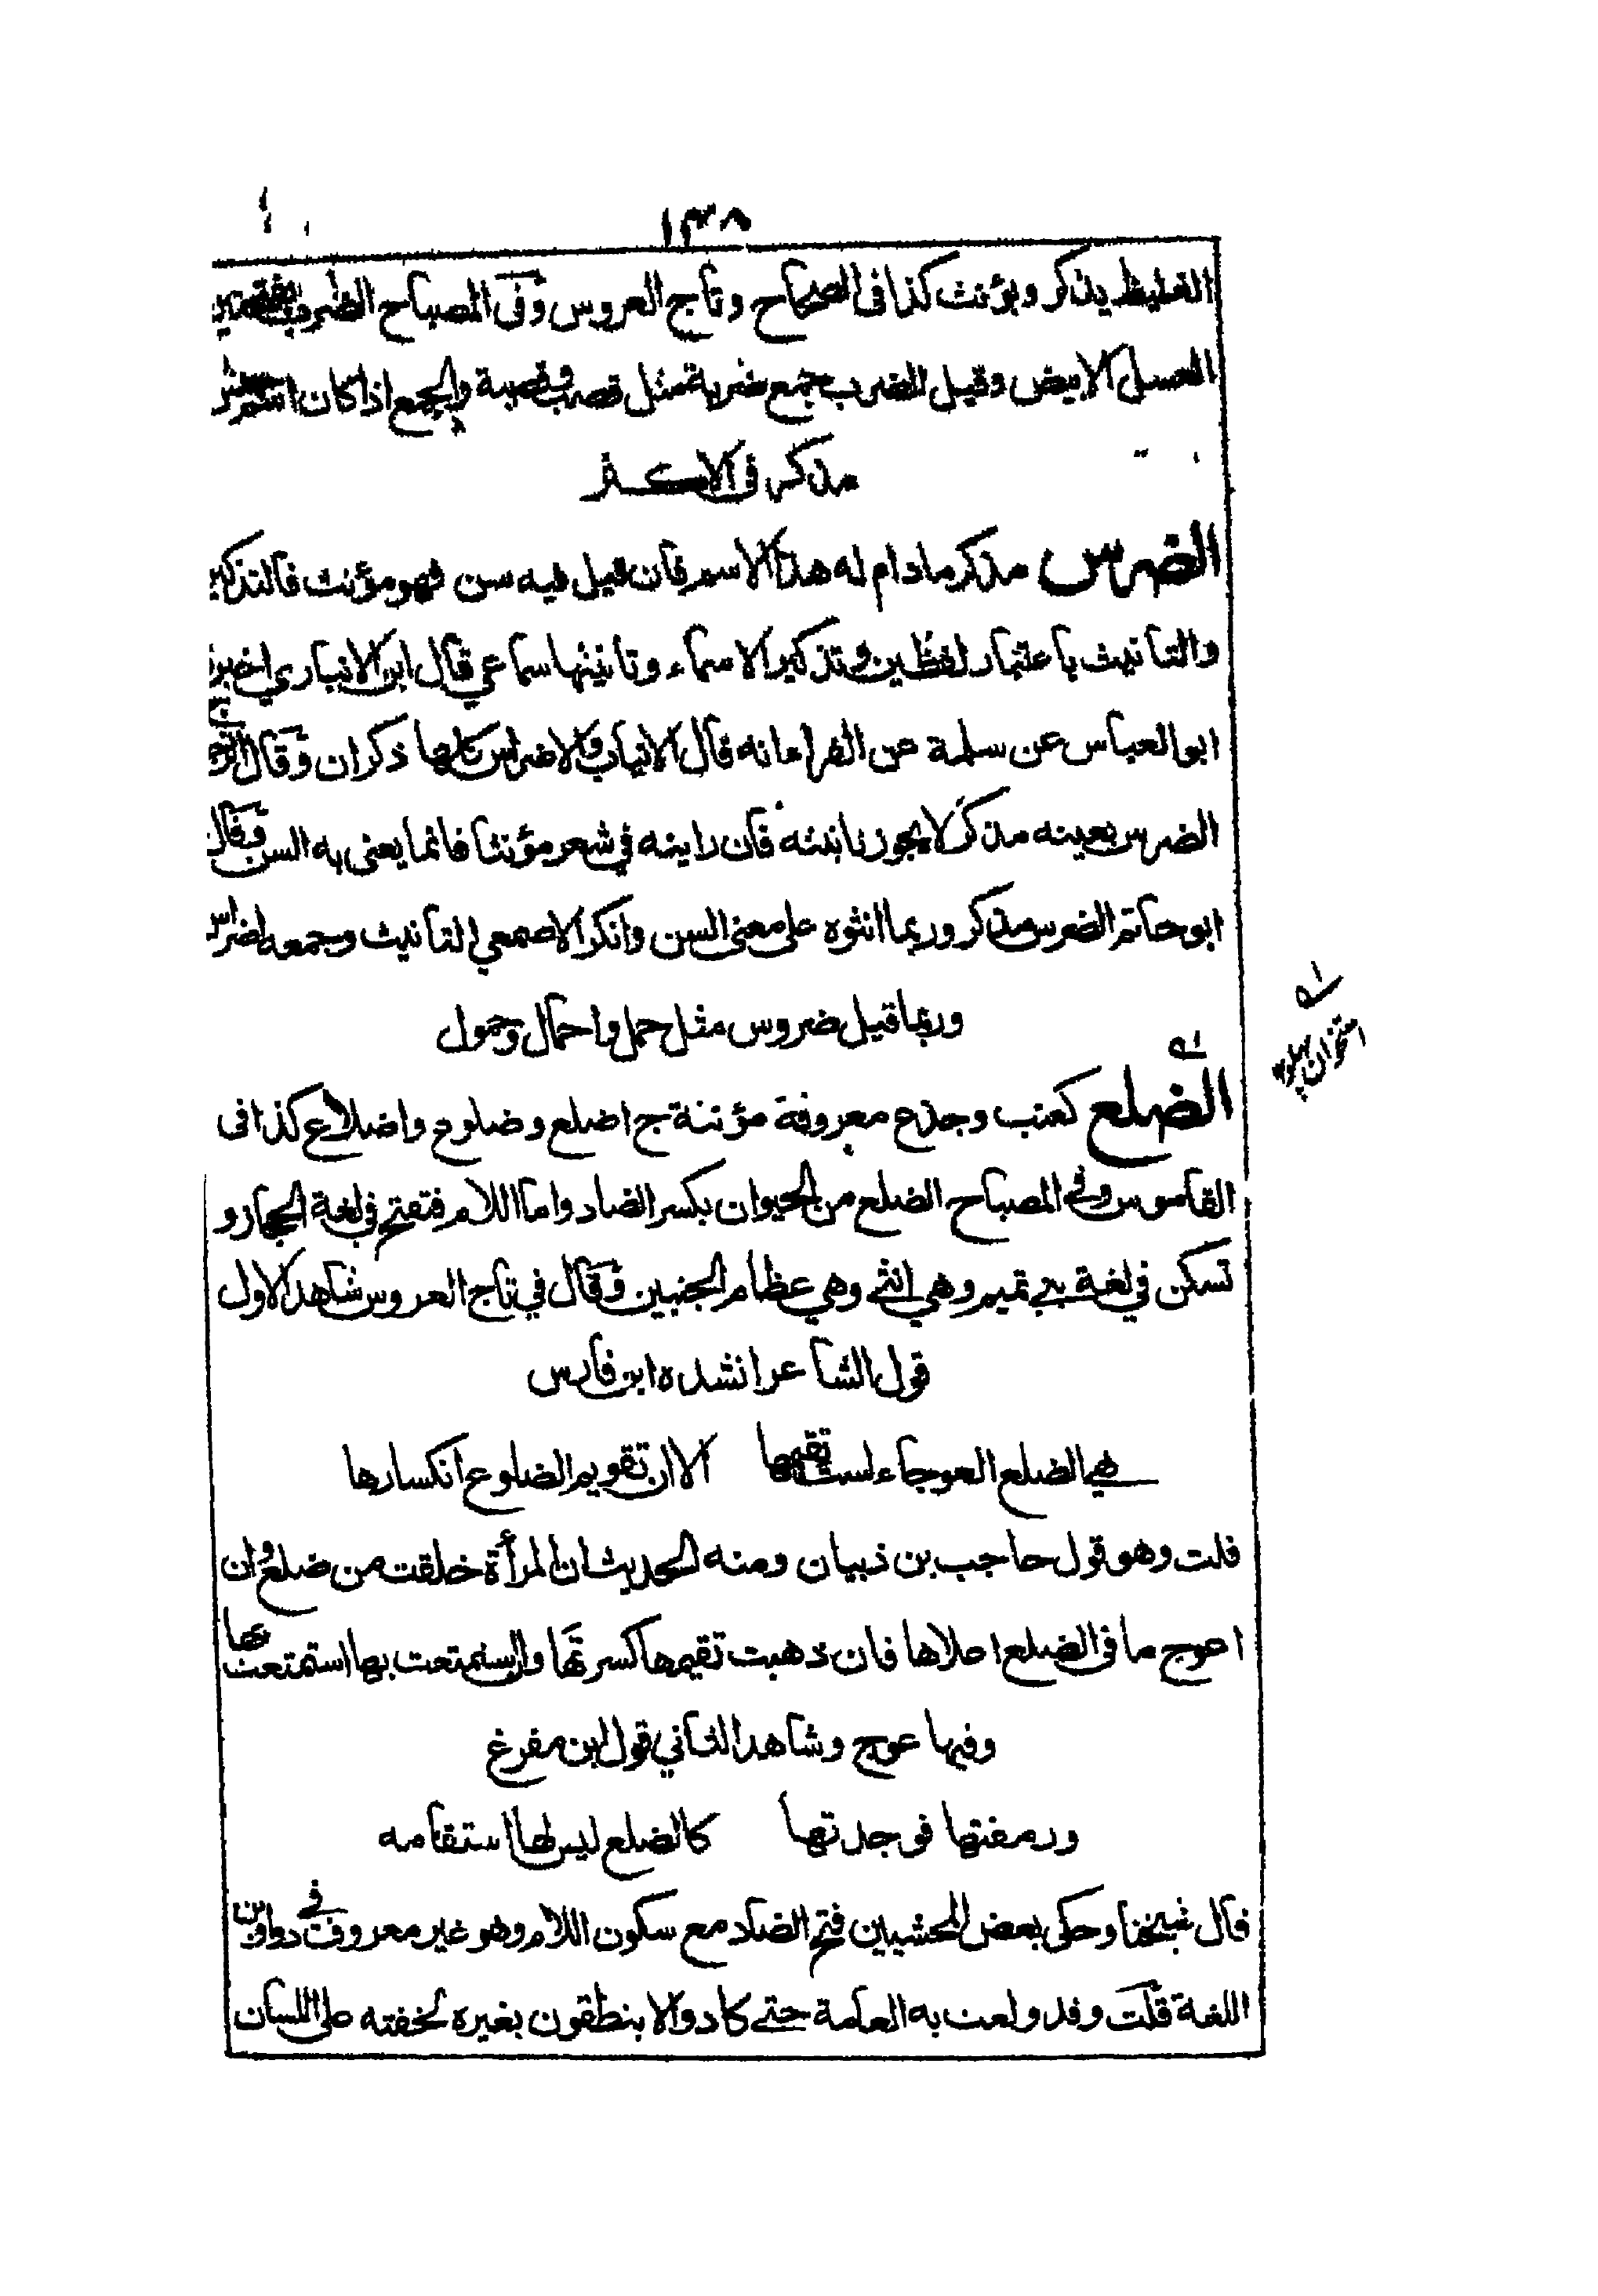 ١٣٨
الغليظ يذكر ويؤنث كذا فى الصحاح وتاج العروس وفى المصباح الضرب بفتحتين
العسل الابيض وقيل الضرب جمع ضربة مثل قصب وقصبة والجمع اذا كان اسم جنس
مذكر فى الاكثر
الضرس مذكر ما دام له هذا الاسم فان قيل فيه سن فهو مؤنث فالتذكير
والتانيث باعتبار لفظين وتذكير الاسماء وتانيثها سماعي قال ابن الانباري اخبرنا
ابو العباس عن سلمة عن الفراء انه قال الانياب والاضراس كلها ذكران وقال الزجاج
الضرس بعينه مذكر لا يجوز تانيثه فان رايته في شعر مؤنثا فانما يعنى به السن وقال
ابو حاتم الضرس مذكر وربما انثوه على معنى السن وانكر الاصمعي التانيث وجمعه اضراس
وربما قيل ضروس مثل حمل واحمال وحمول
الضلع كعنب وجذع معروفة مؤنثة ج اضلع وضلوع واضلاع كذا فى
القاموس وفي المصباح الضلع من الحيوان بكسر الضاد واما اللام فتفتح في لغة الحجاز و
تسكن في لغة بني تميم وهي انثى وهي عظام الجنبين وقال في تاج العروس شاهد الاول
قول الشاعر انشده ابن فارس
هي الضلع العوجاء لست تقيمها الا ان تقويم الضلوع انكسارها
قلت وهو قول حاجب بن ذبيان ومنه الحديث ان المرأة خلقت من ضلع وان
اعوج ما فى الضلع اعلاها فان ذهبت تقيمها كسرتها وان استمتعت بها استمتعت بها
وفيها عوج وشاهد الثاني قول ابن مفرغ
ورمقتها فوجدتها كالضلع ليس لها استقامه
قال شيخنا وحكى بعض المحشيين فتح الضاد مع سكون اللام وهو غير معروف في دواوين
اللغة قلت وقد ولعت به العامة حتى كادوا لا ينطقون بغيره لخفته على اللسان
استخوان پهلو